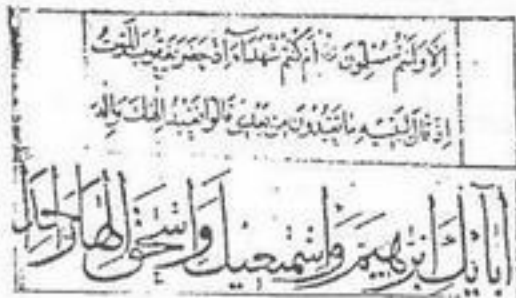 الا وانتم مسلمون ام كنتم شهداء اذ حضر يعقوب الموت
اذ قال لبنيه ما تعبدون من بعدي قالوا نعبد الهك واله
ابائك ابرهيم واسمعيل واسحق الها واحدا